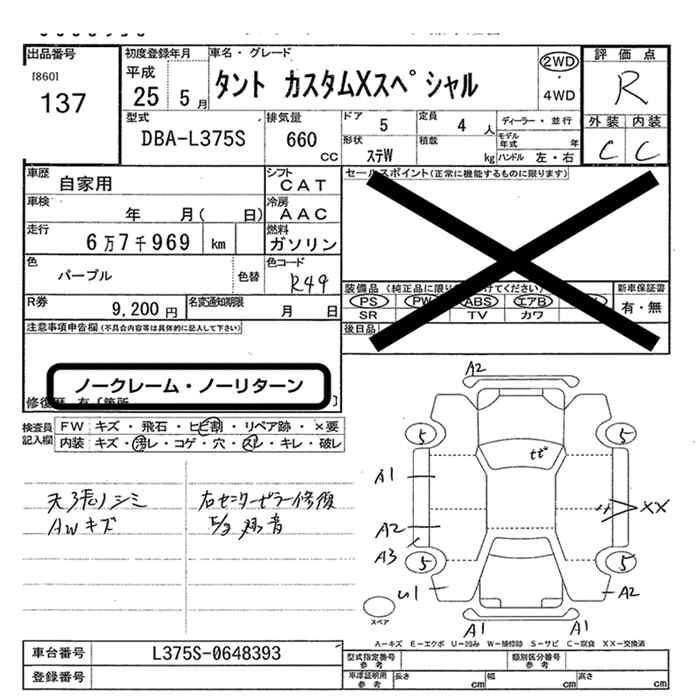 出品番号
[860]
137
初度登録年月
平成
25 5月
車名・グレード
タント カスタムXスペシャル
2WD
・
4WD
評価点
R
外装 内装
C C
型式
DBA-L375S
排気量
660
cc
ドア
5
定員
4 人
形状
ステW
積載
kg
ディーラー・並行
モデル年式 年
ハンドル 左・右
車歴
自家用
シフト
CAT
車検
年 月( 日)
冷房
AAC
走行
6万7千969 km
燃料
ガソリン
色
パープル
色替
色コード
R49
R券
9,200円
名変通知期限
月 日
セールスポイント(正常に機能するものに限ります)
装備品 (純正品に限り てください)
PS PW ABS エアB
SR TV カワ
後日品
新車保証書
有・無
注意事項申告欄 (不具合内容等は具体的に記入して下さい)
ノークレーム・ノーリターン
検査員記入欄
FW キズ・飛石・ヒビ割・リペア跡・×要
内装 キズ・汚レ・コゲ・穴・スレ・キレ・破レ
天張ノシミ
AWキズ
右センターピラー修復
A2
5 5
A1
A2
A3
XX
5 5
U1
A2
A1 A1
スペア
A−キズ E−エクボ U−凹み W−補修跡 S−サビ C−腐食 XX−交換済
車台番号
L375S-0648393
登録番号
型式指定番号 参考
類別区分番号 参考
車庫証明用 参考
長さ cm
幅 cm
高さ cm